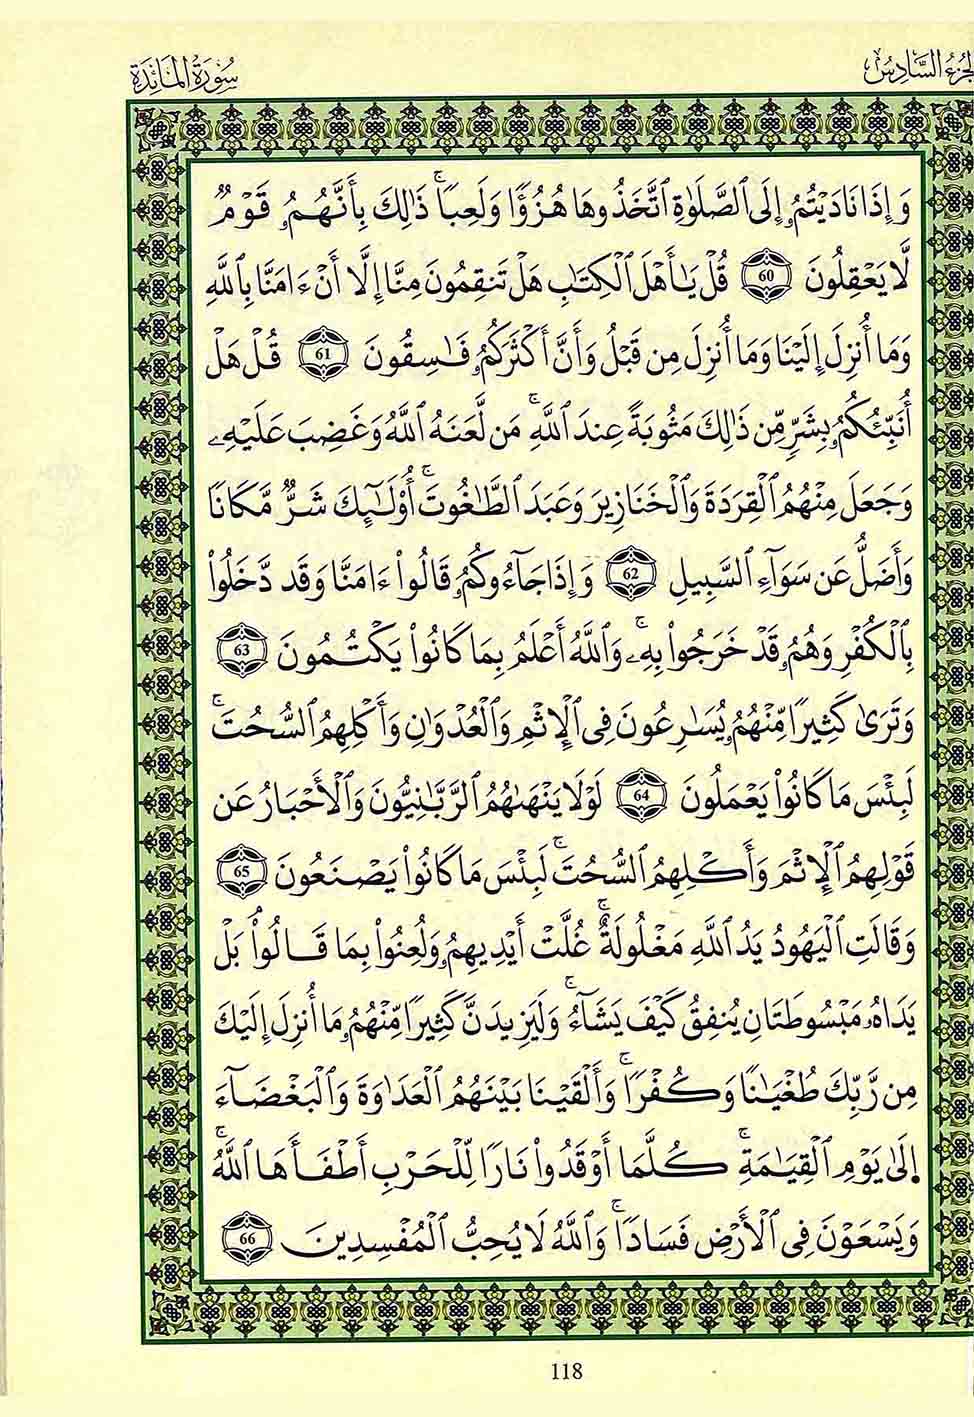 الجزء السادس سورة المائدة
وَإِذَا نَادَيْتُمُۥٓ إِلَى ٱلصَّلَوٰةِ ٱتَّخَذُوهَا هُزُؤًا وَلَعِبًاۚ ذَٰلِكَ بِأَنَّهُمُۥ قَوْمٌ
لَّا يَعْقِلُونَ 60 قُلْ يَـٰٓأَهْلَ ٱلْكِتَـٰبِ هَلْ تَنقِمُونَ مِنَّا إِلَّا أَنْ ءَامَنَّا بِٱللَّهِ
وَمَا أُنزِلَ إِلَيْنَا وَمَا أُنزِلَ مِن قَبْلُ وَأَنَّ أَكْثَرَكُمُۥ فَـٰسِقُونَ 61 قُلْ هَلْ
أُنَبِّئُكُمُۥ بِشَرٍّ مِّن ذَٰلِكَ مَثُوبَةً عِندَ ٱللَّهِۚ مَن لَّعَنَهُ ٱللَّهُ وَغَضِبَ عَلَيْهِۦ
وَجَعَلَ مِنْهُمُ ٱلْقِرَدَةَ وَٱلْخَنَازِيرَ وَعَبَدَ ٱلطَّـٰغُوتَۚ أُوْلَـٰٓئِكَ شَرٌّ مَّكَانًا
وَأَضَلُّ عَن سَوَآءِ ٱلسَّبِيلِ 62 وَإِذَا جَآءُوكُمُۥ قَالُواْ ءَامَنَّا وَقَد دَّخَلُواْ
بِٱلْكُفْرِ وَهُمُۥ قَدْ خَرَجُواْ بِهِۦۚ وَٱللَّهُ أَعْلَمُ بِمَا كَانُواْ يَكْتُمُونَ 63
وَتَرَىٰ كَثِيرًا مِّنْهُمُۥ يُسَـٰرِعُونَ فِى ٱلْإِثْمِ وَٱلْعُدْوَٰنِ وَأَكْلِهِمُ ٱلسُّحُتَۚ
لَبِئْسَ مَا كَانُواْ يَعْمَلُونَ 64 لَوْلَا يَنْهَىٰهُمُ ٱلرَّبَّـٰنِيُّونَ وَٱلْأَحْبَارُ عَن
قَوْلِهِمُ ٱلْإِثْمَ وَأَكْلِهِمُ ٱلسُّحُتَۚ لَبِئْسَ مَا كَانُواْ يَصْنَعُونَ 65
وَقَالَتِ ٱلْيَهُودُ يَدُ ٱللَّهِ مَغْلُولَةٌۚ غُلَّتْ أَيْدِيهِمُۥ وَلُعِنُواْ بِمَا قَالُواْۘ بَلْ
يَدَاهُۥ مَبْسُوطَتَانِ يُنفِقُ كَيْفَ يَشَآءُۚ وَلَيَزِيدَنَّ كَثِيرًا مِّنْهُمُۥ مَا أُنزِلَ إِلَيْكَ
مِن رَّبِّكَ طُغْيَـٰنًا وَكُفْرًاۚ وَأَلْقَيْنَا بَيْنَهُمُ ٱلْعَدَاوَةَ وَٱلْبَغْضَآءَ
إِلَىٰ يَوْمِ ٱلْقِيَـٰمَةِۚ كُلَّمَا أَوْقَدُواْ نَارًا لِّلْحَرْبِ أَطْفَأَهَا ٱللَّهُۚ
وَيَسْعَوْنَ فِى ٱلْأَرْضِ فَسَادًاۚ وَٱللَّهُ لَا يُحِبُّ ٱلْمُفْسِدِينَ 66
118